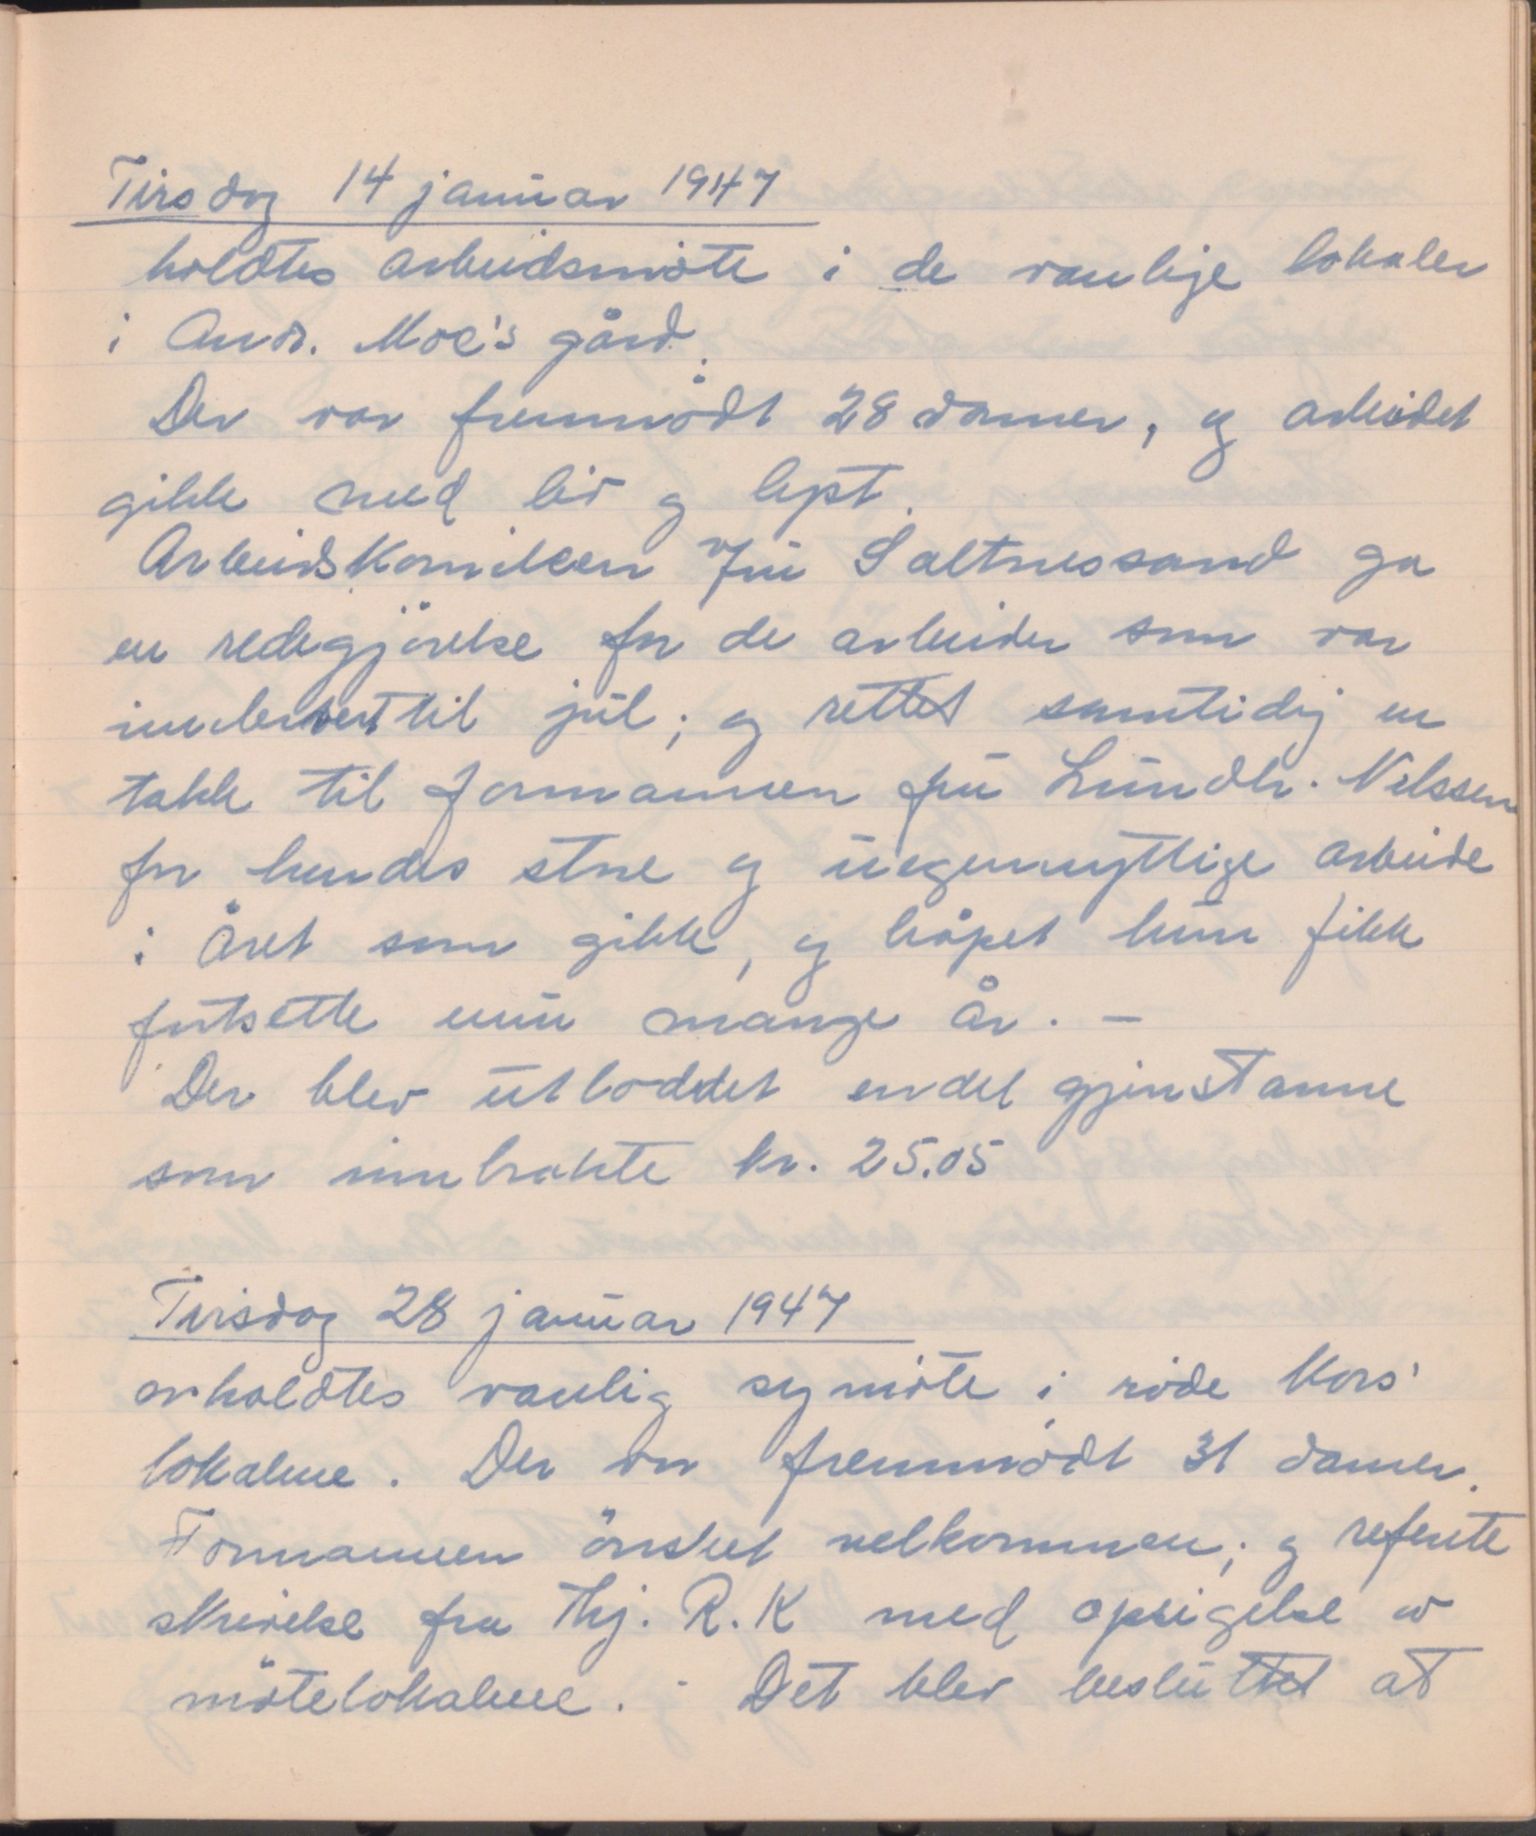 Tirsdag 14 januar 1947
holdtes arbeidsmöte i de vanlige lokaler
i Andr. Moe's gård.
Der var fremmödt 28 damer, og arbeidet
gikk med liv og lyst.
Arbeidskomiteen Fru Saltnessand ga
en redegjörelse for de arbeider som var
innlevert til jul; og rettet samtidig en
takk til formannen fru Lundh. Nilssen
for hendes store og uegennyttige arbeide
i året som gikk, og håpet hun fikk
fortsette ennu mange år. –
Der blev utloddet endel gjenstanne
som innbrakte kr. 25.05
Tirsdag 28 januar 1947
avholdtes vanlig symöte i röde Kors'
lokalene. Der var fremmödt 31 damer.
Formannen önsket velkommen; og referte
skrivelse fra Thj. R. K med opsigelse av
mötelokalene. - Det blev besluttet at